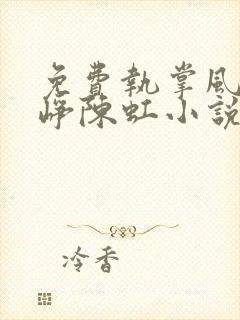 免費執掌風
崢陳虹小說
冷香